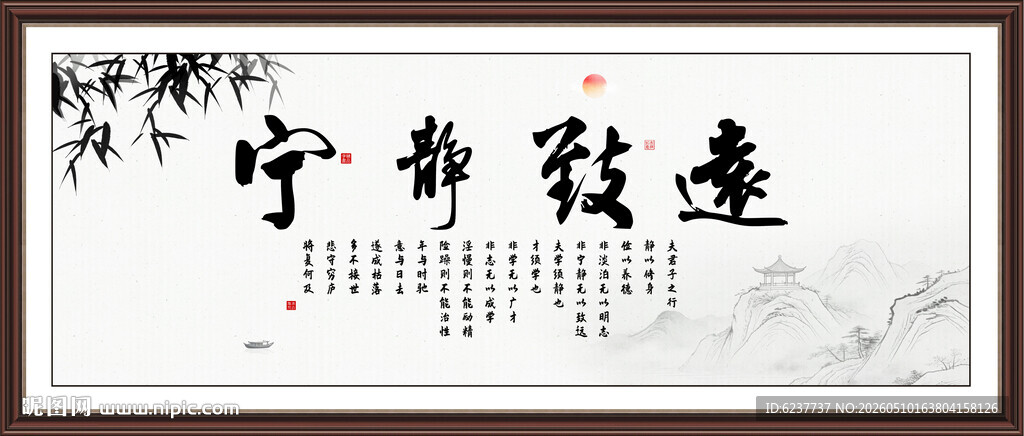 宁静致遠
夫君子之行
静以修身
俭以养德
非淡泊无以明志
非宁静无以致远
夫学须静也
才须学也
非学无以广才
非志无以成学
淫慢则不能励精
险躁则不能治性
年与时驰
意与日去
遂成枯落
多不接世
悲守穷庐
将复何及
昵图网 www.nipic.com
ID:6237737 NO:20260510163804158126